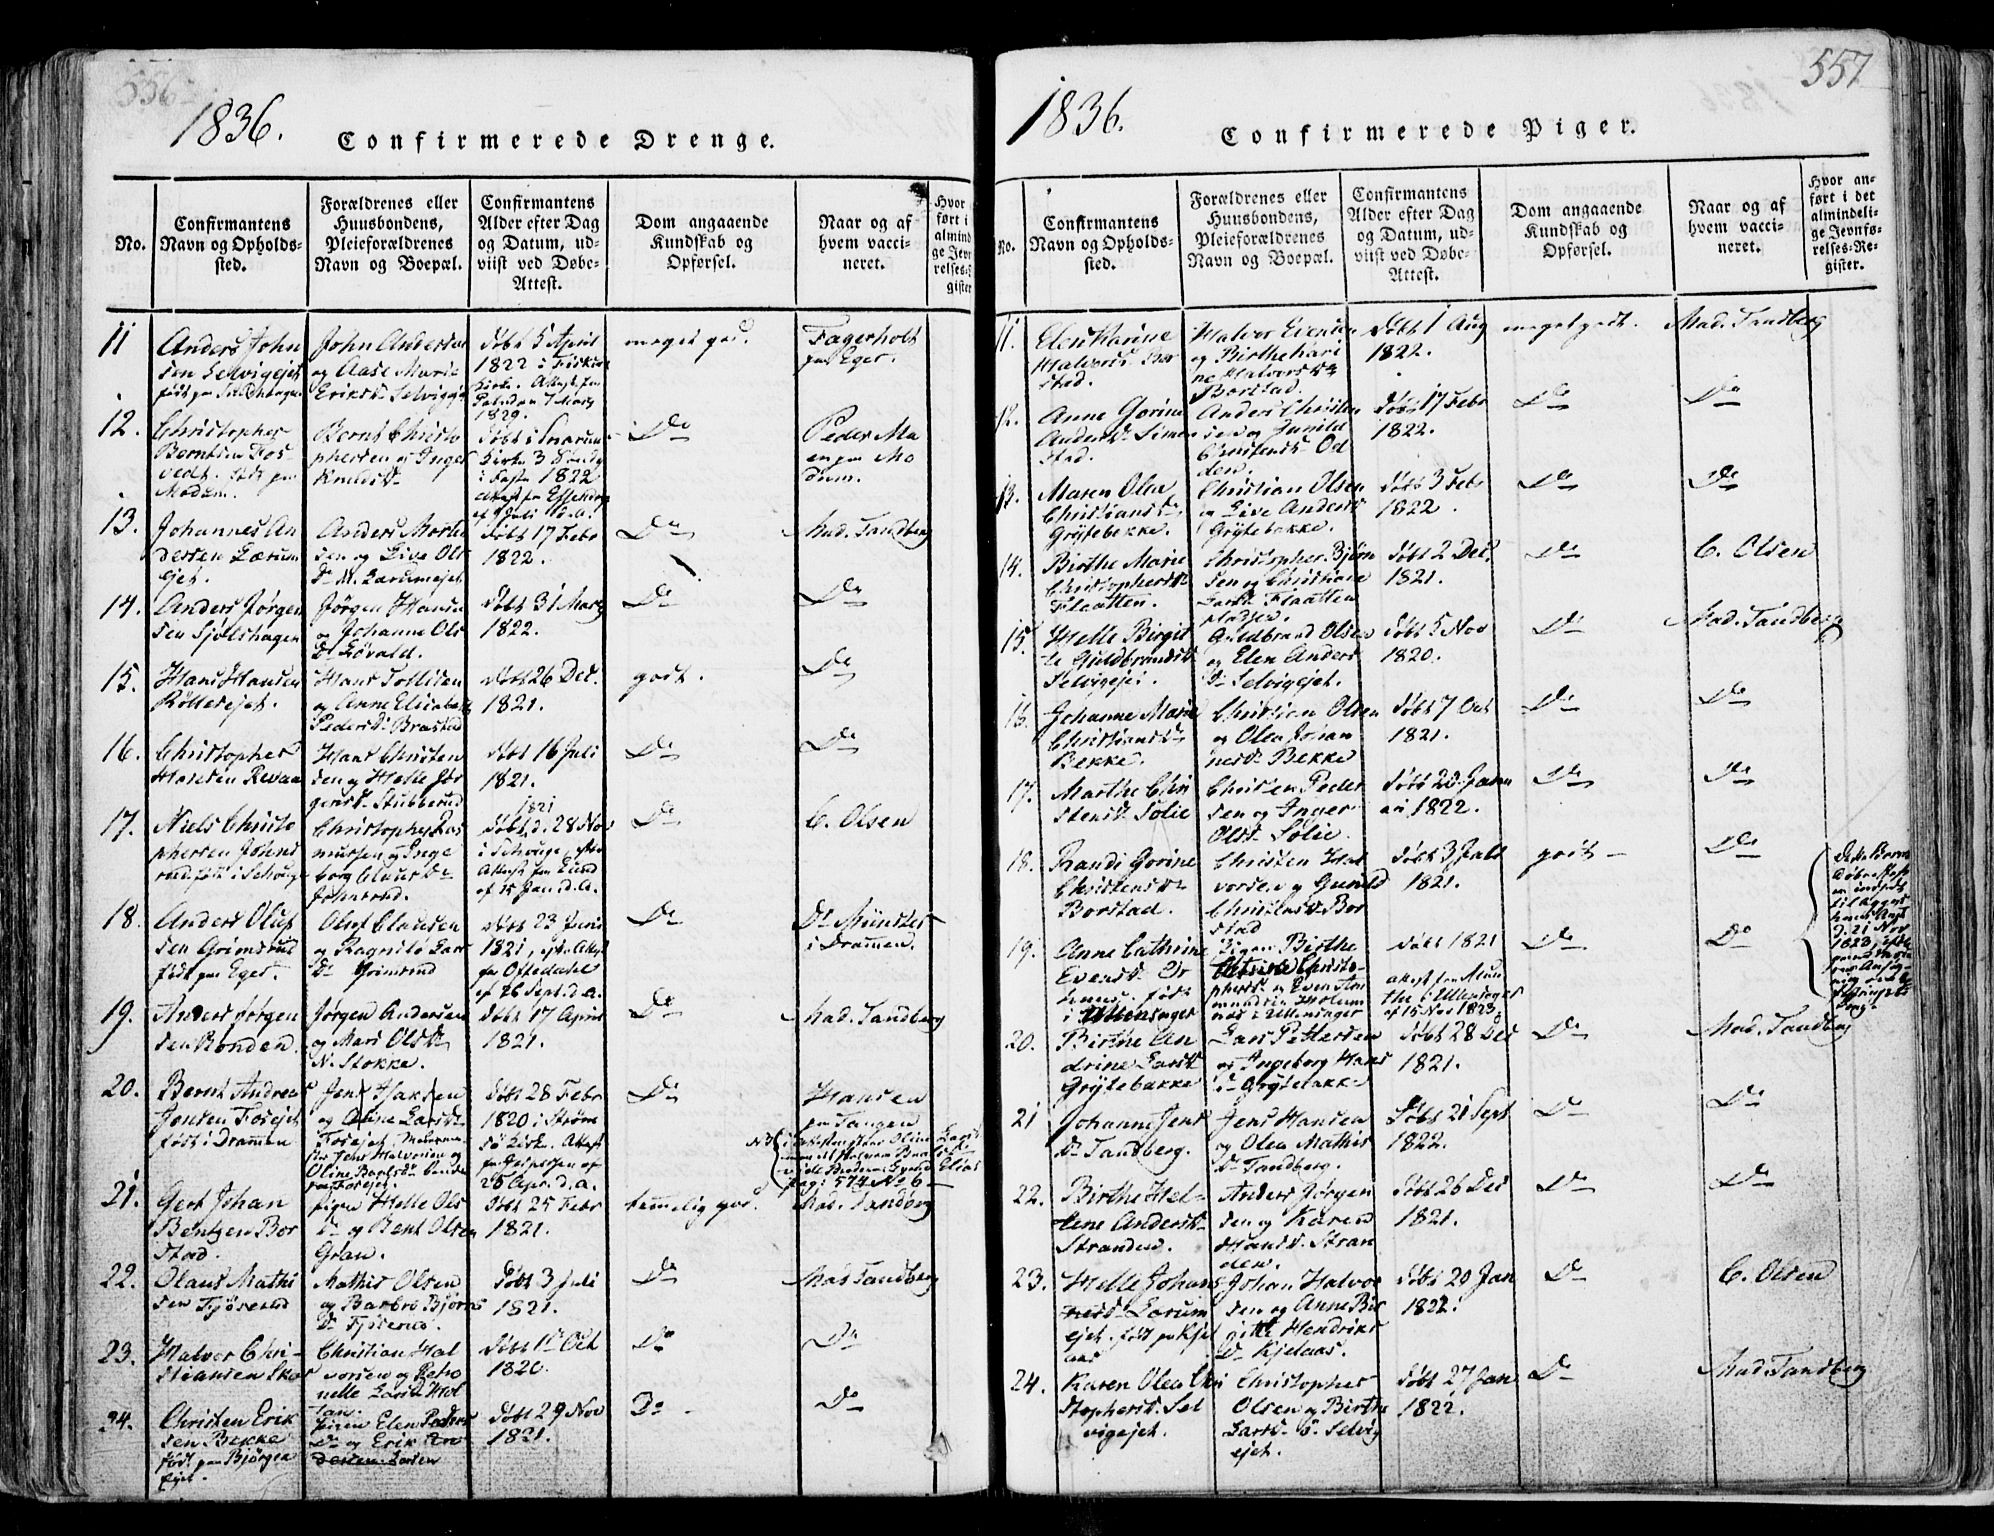 556
1836.
Confirmerede Drenge.
No.
Confirmantens
Navn og Opholds-
sted.
Forældrenes eller
Huusbondens,
Pleieforældrenes
Navn og Boepæl.
Confirmantens
Alder efter Dag
og Datum, ud-
viist ved Døbe-
Attest.
Dom angaaende
Kundskab og
Opførsel.
Naar og af
hvem vacci-
neret.
Hvor
ført i
almind
ge Jevn
relses-
gister
11
Anders John
sen Selvigejet
John Andersen
og Aase Marie
Eriksd. Selvigej
døbt 5 April
1822 i
Kirke. Attest fra
7 Marz
1829.
meget god.
Fagerholt
paa Eger.
12.
Christopher
Berntsen Fos
vedt. født paa
Modum.
Bernt Christo
phersen og Inger
Knudsd.
døbt i Snarum
Kirke 3 Søndag
i Faste 1822
Do
Peder Mo
en paa Mo
dum.
13.
Johannes An
dersen Lærum
ejet.
Anders Morten
sen og Live Ols
Dr N. Lærumejet.
døbt 17 Febr
1822.
Do
Mad. Tandberg
14.
Anders Jørgen
sen Sjølshagen
Jørgen Hansen
og Johanne Ols
Dr Løvald.
døbt 31 Marz
1822.
Do
Do
15.
Hans Hansen
Røllesejet.
Hans Tollisen
og Anne Elisabeth
Pedersd. Brastad
døbt 26 Dec.
1821.
godt.
Do
16.
Christopher
Hansen Revaa
Hans Christen
sen og Helle Jør
gensd. Stubberud
døbt 16 Juli
1821.
Do
Do
17.
Niels Christo
phersen Johns
rud født i
Christopher Ras
mussen og Inge
borg Clausd.
Johnsrud.
1821
døbt d. 28 Nov
i
Attest fra Lund
af 15 Jan. d. A.
Do
C. Olsen
18.
Anders Oluf
sen Grimsrud
født paa Eger.
Oluf Clausen
og Ragnild Lars
Dr Grimsrud
døbt 23 Juni
1821, Attest
fra Oftedahl
af 26 Sept. d. a.
Do
Dr Münster
i Drammen.
19.
Anders Jørgen
sen Ronden.
Jørgen Andersen
og Mari Olsd.
N. Stokke.
døbt 17 April
1821.
Do
Mad. Tandberg
20.
Bernt Andreas
Jensen Fosejet
født i Drammen
Jens Hansen
og Oline Larsd.
Fosejet,
døbt 28 Febr
1820 i Strøm
sø Kirke. Attest
fra Jespersen af
25 Apr. d. a.
Do
Hansen
paa Tangen
pag: 574 No 6
21.
Gert Johan
Bentzen Bor
stad.
Pigen Helle Ols
Dr og Bent Olsen
Gran.
døbt 25 Febr
1821.
temmelig god.
Mad. Tandberg
22.
Olaus Mathi
sen Tjøsterud
Mathis Olsen
og Barbro Bjørns
Dr
døbt 3 Juli
1821.
Do
Mad Tandberg
23.
Halvor Chri-
stiansen
Christian Hal
vorsen og Petro
nelle Larsd. Hol
tan.
døbt 10 Oct
1820.
Do
Do
24.
Christen Erik
sen Bekke
født paa Bjørgen
ejet.
Pigen Elen Peders
Dr og Erik
døbt 29 Nov
1821.
Do
Do
557
1836.
Confirmerede Piger.
No.
Confirmantens
Navn og Opholds-
sted.
Forældrenes eller
Huusbondens,
Pleieforældrenes
Navn og Boepæl.
Confirmantens
Alder efter Dag
og Datum, ud-
viist ved Døbe-
Attest.
Dom angaaende
Kundskab og
Opførsel.
Naar og af
hvem vacci-
neret.
Hvor an-
ført i det
almindeli-
ge Jevnfø-
relses-Re-
gister.
11.
Elen Karine
Halvorsd. Bor
stad.
Halvor Evensen
og Birthe Kari
ne Halvorsd.
Borstad.
døbt 1 Aug
1822.
meget godt.
Mad. Tandberg
12.
Anne Gorine
Andersd. Simen
stad.
Anders Christen
sen og Gunild
Christensd. Od
den.
døbt 17 Febr
1822.
Do
Do
13.
Maren Olea
Christiansd.
Grytebekke.
Christian Olsen
og Live Andersd
Grytebakke.
døbt 3 Febr
1822.
Do
Do
14.
Birthe Marie
Christophersd.
Flaatten.
Christopher Bjørn
sen og Christiane
Larsd. Flaatten
pladsen.
døbt 2 Dec.
1821.
Do
C. Olsen
15.
Helle Birgit
te Guldbrandsd.
Selvigejei.
Guldbrand Olsen
og Elen Anders
Dr Selvigejet.
døbt 5 Nov
1820.
Do
Mad. Tandberg
16.
Johanne Marie
Christiansd.
Bekke.
Christian Olsen
og Olea Johan
nesd. Bekke
døbt 7 Oct
1821.
Do
Do
17.
Marthe Chri
stensd. Sølie
Christen Peder
sen og Inger
Olsd. Sølie.
døbt 20 Janu
ari 1822.
Do
Do
18.
Randi Govine
Christensd.
Borstad.
Christen Hal
vorsen og Gunild
Christensd. Bor
stad
døbt 3 Juli
1821.
godt
Do
19.
Anne Cathrine
Evensd.
født
i Ullensager
Pigen Birthe
Christo-
phersd. og Even
Holum
i Ullensager
døbt 1821
attest fra Mun
the i Ullensager
af 15 Nov 1823
Do
Do
20.
Birthe An
drine Larsd.
Grytebakke
Lars Pettersen
og Ingeborg Hans
Dr Grytebakke
døbt 28 Dec
1821.
Do
Mad. Tandberg
21
Johanne Jens
Dr Tandberg.
Jens Hansen
og Olea Mathis
Dr Tandberg.
døbt 21 Sept
1822.
Do
Do
22.
Birthe Hel-
lene Andersd.
Stranden.
Anders Jørgen
sen og Karen
Hansd. Stran
den.
døbt 26 Dec
1821.
Do
Do
23.
Helle Johan
nesd. Lærum
ejet. født paa Kjel
aas
Johan Halvor
sen og Anne Bir
gitte Hendriks
Dr Kjelaas.
døbt 20 Jan
1822.
Do
C. Olsen
24.
Karen Olea Chri
stophersd. Sel
vigejet.
Christopher
Olsen og Birthe
Larsd. Selvig
ejet.
døbt 27 Jan
1822.
Do
Mad. Tandberg